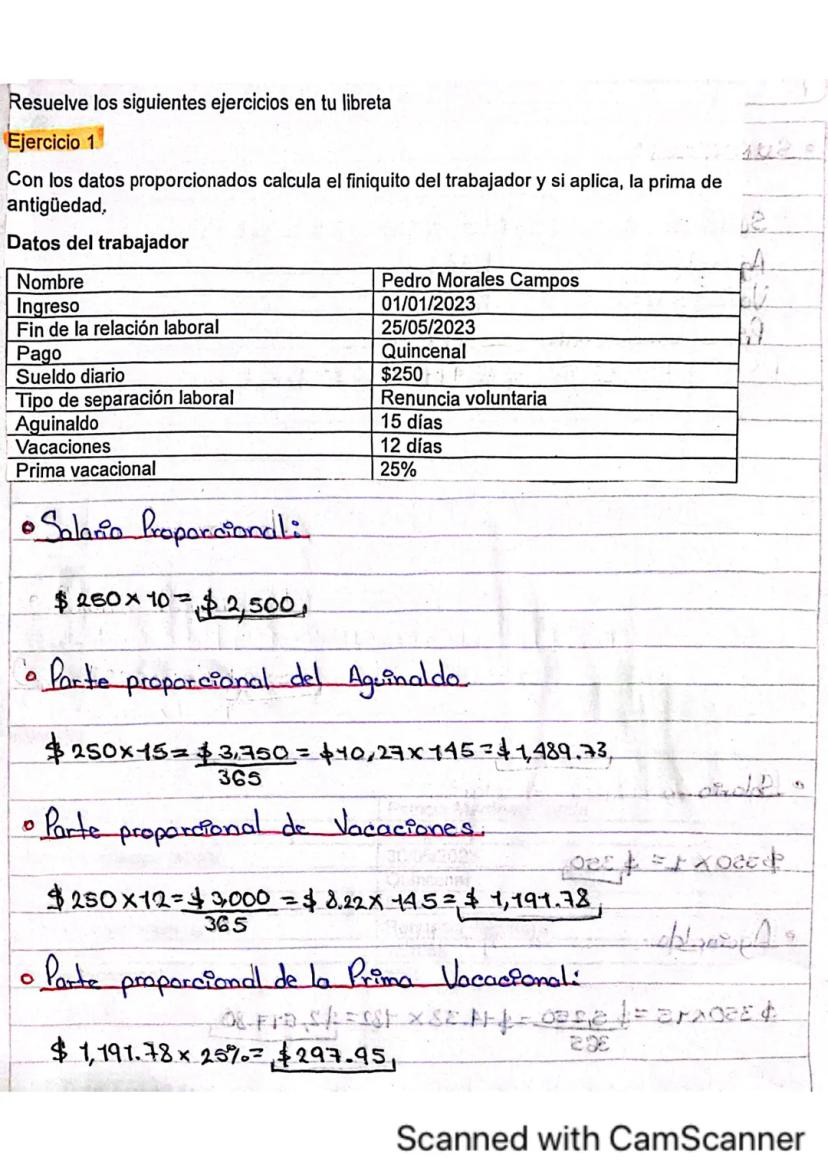 Resuelve los siguientes ejercicios en tu libreta
Ejercicio 1
Con los datos proporcionados calcula el finiquito del trabajador y si aplica, la prima de
antigüedad,
Datos del trabajador
Nombre Pedro Morales Campos
Ingreso 01/01/2023
Fin de la relación laboral 25/05/2023
Pago Quincenal
Sueldo diario $250
Tipo de separación laboral Renuncia voluntaria
Aguinaldo 15 días
Vacaciones 12 días
Prima vacacional 25%
• Salario Proporcional:
$ 250 x 10 = $ 2,500
• Parte proporcional del Aguinaldo
$ 250 x 15 = $ 3,750 = $ 10,27 x 145 = $ 1,489.73
365
• Parte proporcional de Vacaciones.
$ 250 x 12 = $ 3,000 = $ 8.22 x 145 = $ 1,191.78
365
• Parte proporcional de la Prima Vacacional:
$ 1,191.78 x 25% = $297.95
Scanned with CamScanner